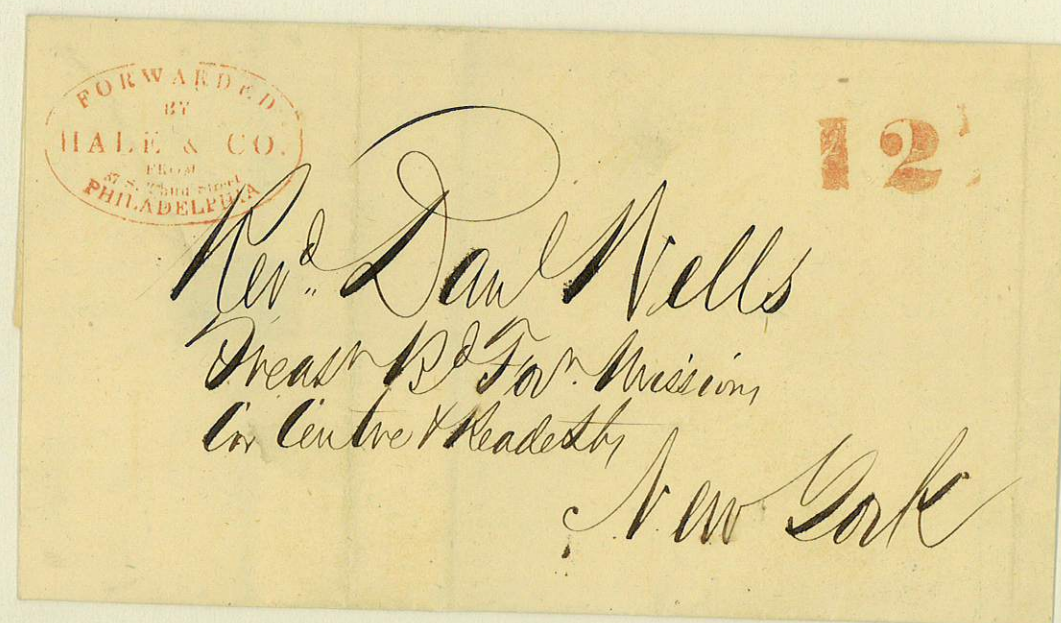 FORWARDED
BY
HALE & CO.
FROM
37 S. Third Street
PHILADELPHIA
12
Revd. Danl Wells
Treasr Bd Forn. Missions
Cor Centre & Reade Sts
New York